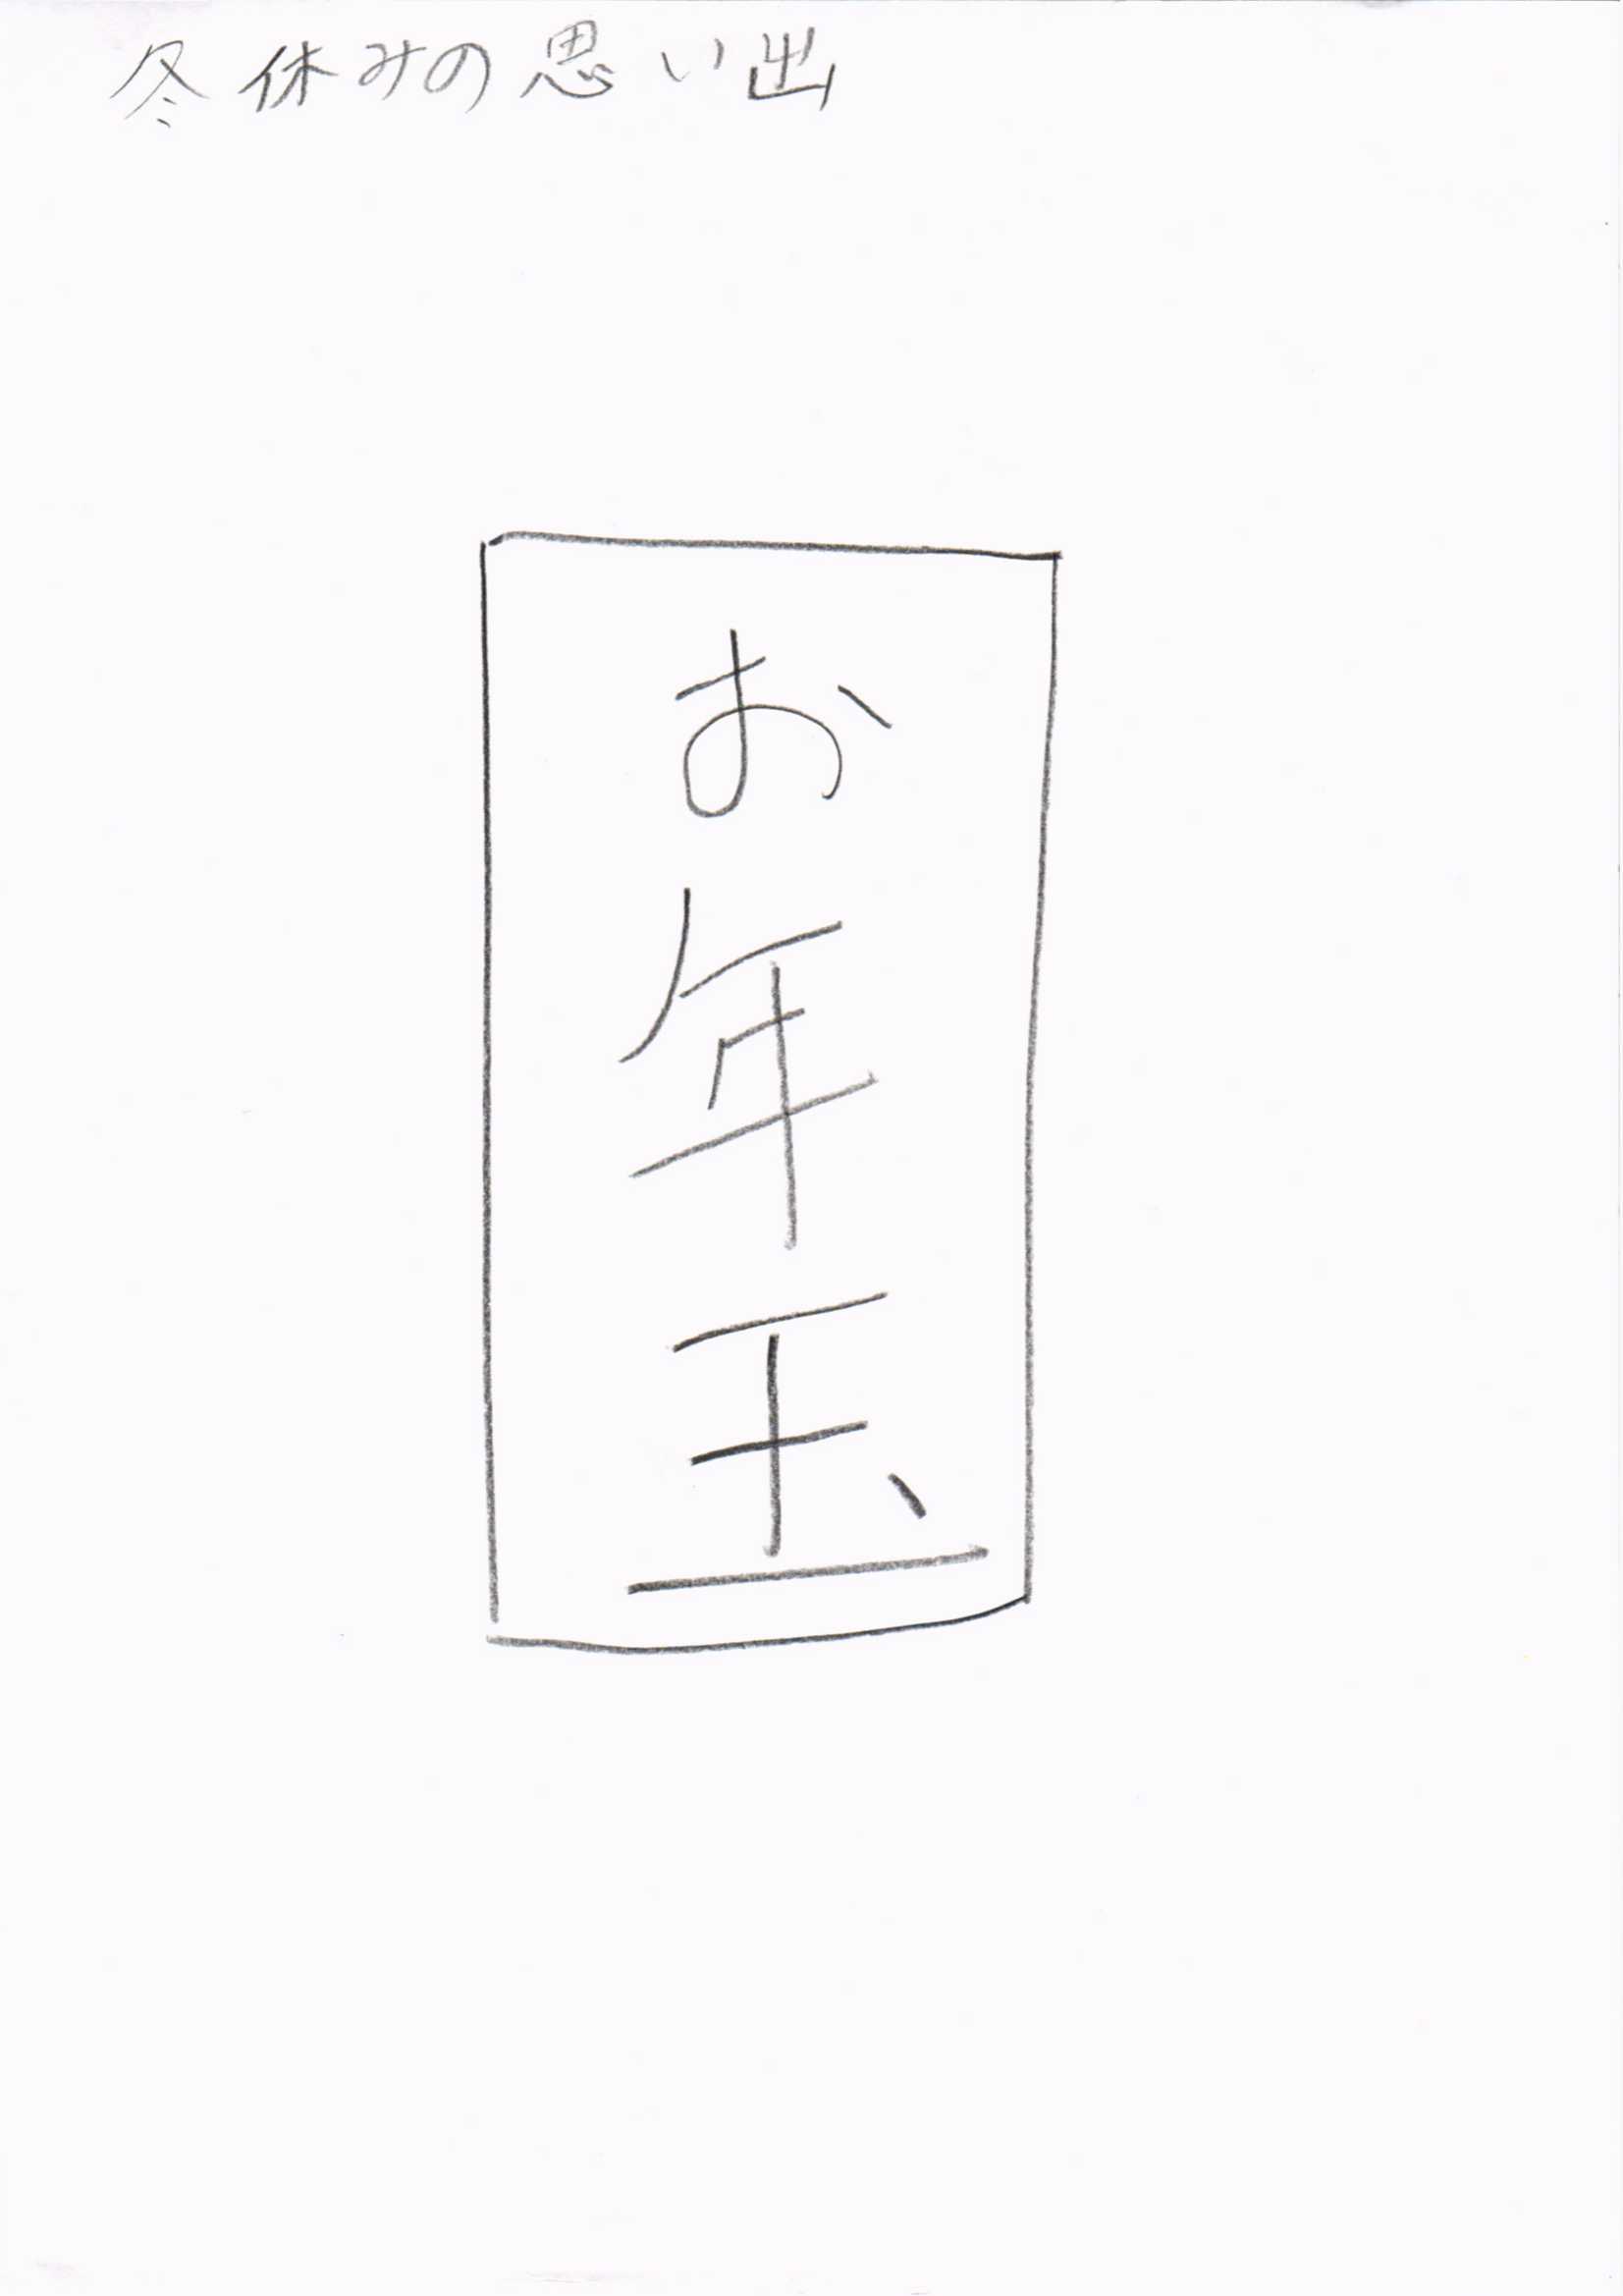 冬休みの思い出
お年玉